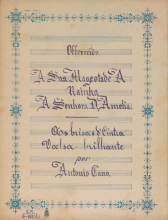 Offerecida
A Sua Magestade A
Rainha
A Senhora D. Amelia
As brisas de Cintra
Valsa brilhante
por
Antonio Cano.